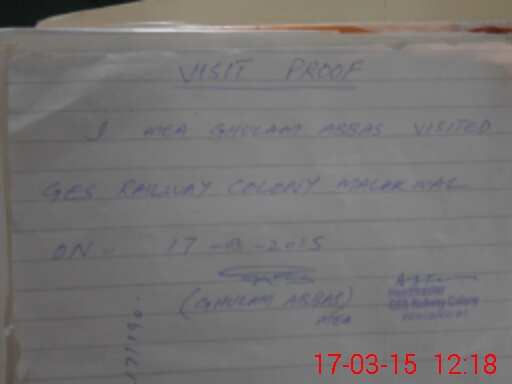 VISIT PROOF
I MEA GHULAM ABBAS VISITED
GES RAILWAY COLONY MALAKWAL
ON - 17-3-2015
(GHULAM ABBAS)
MEA
Headmaster
GES Railway Colony
Malakwal
17-03-15 12:18